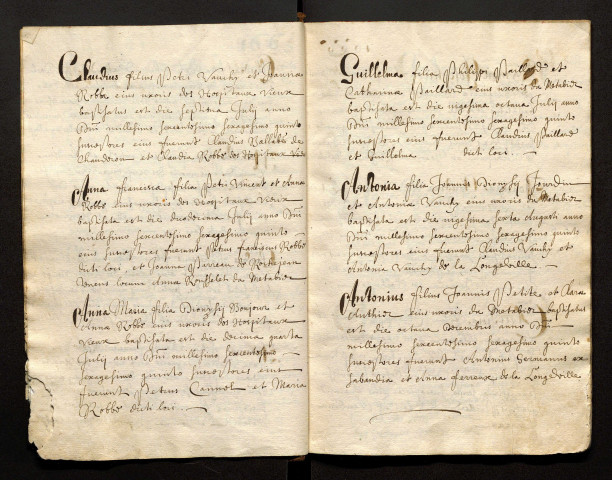 Claudius filius Petri Vauchy et Joanna
Robbe eius uxoris des Hospitaux Vieux
baptisatus est die septima Julij anno
Dni millesimo sexcentesimo sexagesimo quinto
susceptores eius fuerunt Claudius
et Claudia Robbe des Hospitaux Vieux
Anna Francisca filia Petri Vincent et Anna
Robbe eius uxoris des Hospitaux Vieux
baptisata est die duodecima Julij anno Dni
millesimo sexcentesimo sexagesimo quinto
eius susceptores fuerunt Petrus Robbe
dicti loci, et Joanna de
Anna de Metabier
Anna Maria filia Dionysij Bonjour et
Anna Robbe eius uxoris des Hospitaux
Vieux baptisata est die decima quarta
Julij anno Dni millesimo sexcentesimo
sexagesimo quinto susceptores eius
fuerunt Petrus et Maria
Robbe dicti loci.
Guillelma filia Philippi Paillard et
Catharina Paillard eius uxoris de Metabier
baptisata est die vigesima octava Julij anno
Dni millesimo sexcentesimo sexagesimo quinto
susceptores eius fuerunt Claudius Paillard
et Guillelma dicti loci.
Antonia filia Joannis Dionysij Jourdin
et Antonia Vauchy eius uxoris de Metabier
baptisata est die vigesima sexta Augusti anno
Dni millesimo sexcentesimo sexagesimo quinto
susceptores eius fuerunt Claudius Vauchy et
Antonia Vauchy de la Longeville.
Antonius filius Joannis Petite et Clara
Authier eius uxoris de Metabier baptisatus
est die octava Decembris anno Dni
millesimo sexcentesimo sexagesimo quinto
susceptores fuerunt Antonius Germanus ex
Sabaudia et Anna Ferreux de la Longeville